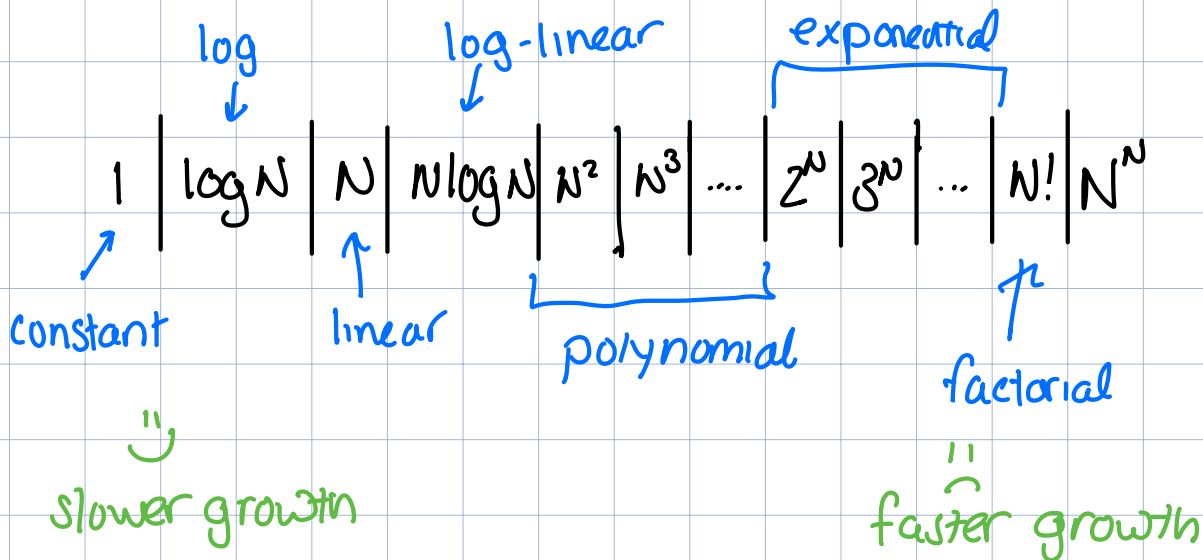 log
log-linear
exponential
1 | log N | N | N log N | N² | N³ | .... | 2ᴺ | 3ᴺ | ... | N! | Nᴺ
constant
linear
polynomial
factorial
slower growth
faster growth